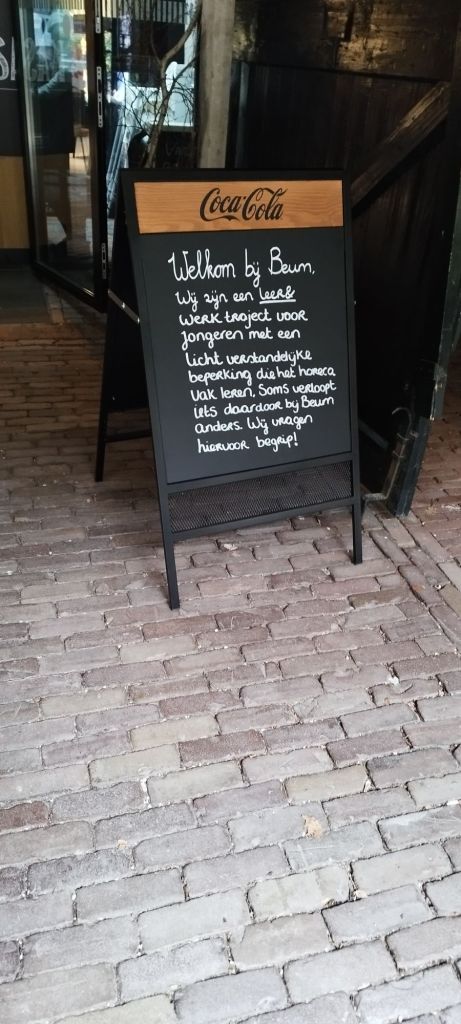 Coca-Cola
Welkom bij Beum.
Wij zijn een leer&
werk troject voor
jongeren met een
licht verstandelijke
beperking die het horeca
vak leren. Soms verloopt
iets daardoor bij Beum
anders. Wij vragen
hiervoor begrip!